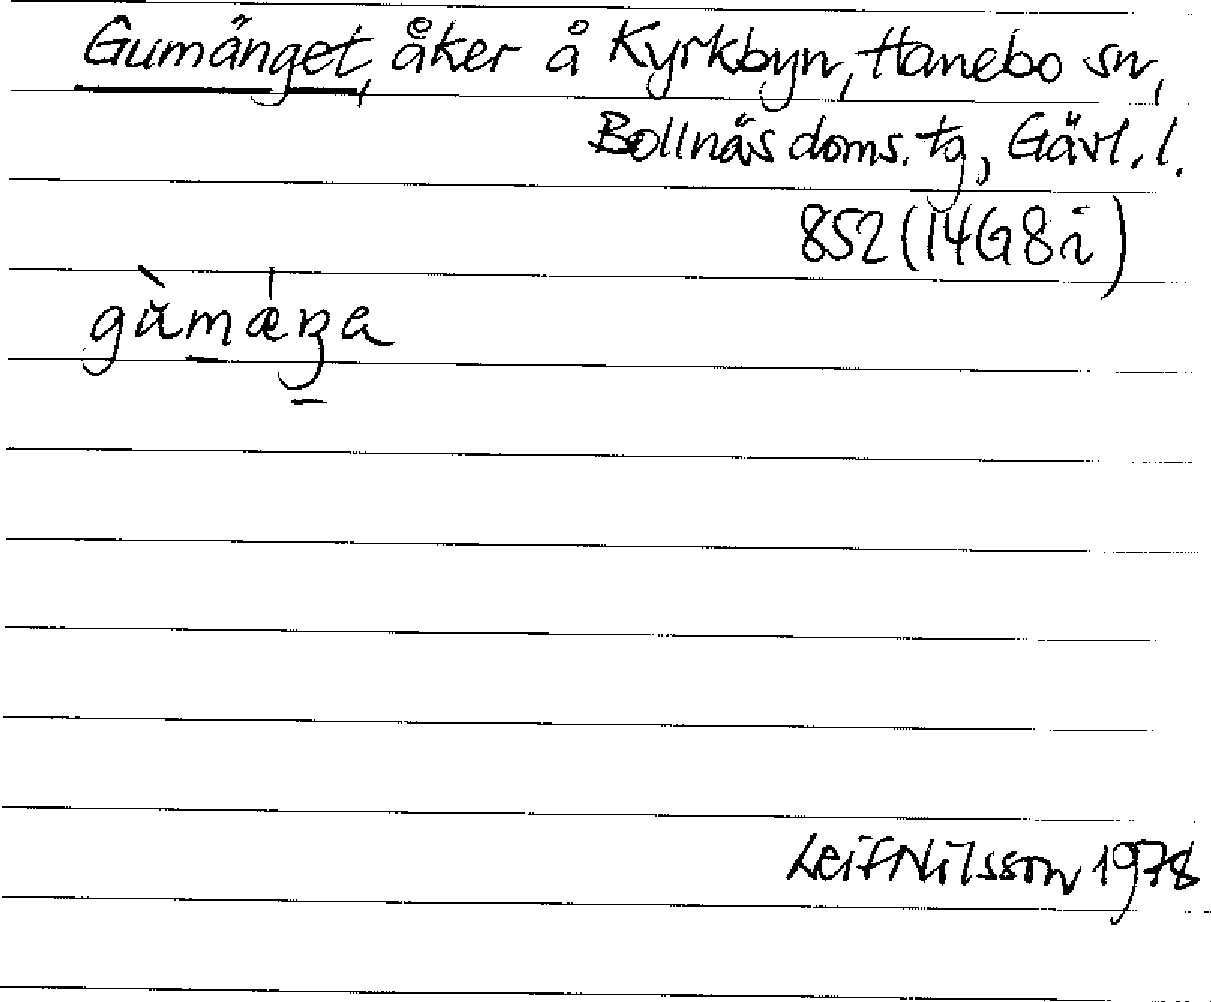 Gumänget, åker å Kyrkbyn, Hanebo sn,
Bollnäs doms. tg, Gävl. l.
852 (14G8i)
Leif Nilsson 1978